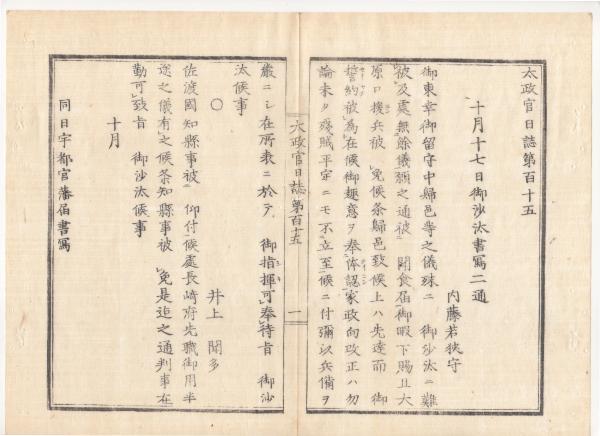 太政官日誌第百十五
十月十七日御沙汰書写二通
内藤若狭守
御東幸御留守中歸邑等之儀殊ニ 御沙汰ニ難
被及處無餘儀願之通被 聞食届御暇下賜且大
原口換兵被 免候条歸邑致候上ハ先達而 御
誓約被為在候御趣意ヲ奉体認家政向改正ハ勿
論未タ殘賊平定ニモ不立至候ニ付彌以兵備ヲ
太政官日誌第百十五
一
嚴ニシ在所表ニ於テ 御指揮可奉待旨 御沙
汰候事
○
井上 聞多
佐渡國知縣事被 仰付候處長崎府先職御用半
途之儀有之候条知縣事被 免是迄之通判事在
勤可致旨 御沙汰候事
十月
同日宇都宮藩届書寫